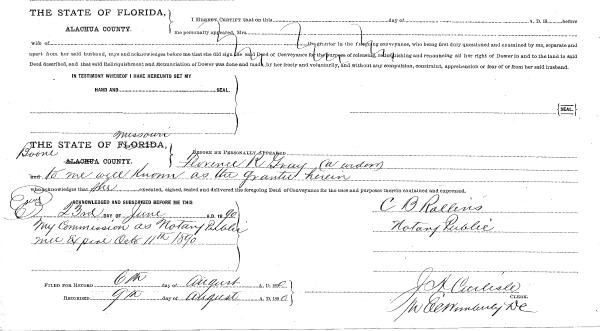 THE STATE OF FLORIDA,
ALACHUA COUNTY.
I HEREBY CERTIFY that on this day of A. D. 18 before
me personally appeared, Mrs.
wife of the grantor in the foregoing conveyance, who being first duly questioned and examined by me, separate and
apart from her said husband, says and acknowledges before me that she did sign the said Deed of Conveyance for the purpose of releasing, relinquishing and renouncing all her right of Dower in and to the land in said
Deed described, and that said Relinquishment and Renunciation of Dower was done and made by her freely and voluntarily, and without any compulsion, constraint, apprehension or fear of or from her said husband.
IN TESTIMONY WHEREOF I HAVE HEREUNTO SET MY
HAND AND SEAL.
SEAL.
Missouri
THE STATE OF FLORIDA,
Boone
ALACHUA COUNTY.
BEFORE ME PERSONALLY APPEARED
Florence R Gray (a widow)
and to me well known as the grantor herein
who acknowledges that she executed, signed, sealed and delivered the foregoing Deed of Conveyance for the uses and purposes therein contained and expressed.
ACKNOWLEDGED AND SUBSCRIBED BEFORE ME THIS
23rd DAY OF June A. D. 1890
My Commission as Notary Public
will Expire Octo 11th 1890
C B Rollins
Notary Public
FILED FOR RECORD 6th day of August A. D. 1890
RECORDED 9th day of August A. D. 1890
J A Carlisle
CLERK.
Wimberly DC